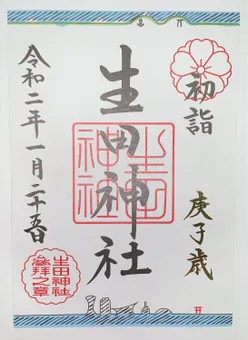 初詣
庚子歳
生田神社
生田
神社
令和二年一月二十五日
生田神社
參拜之章